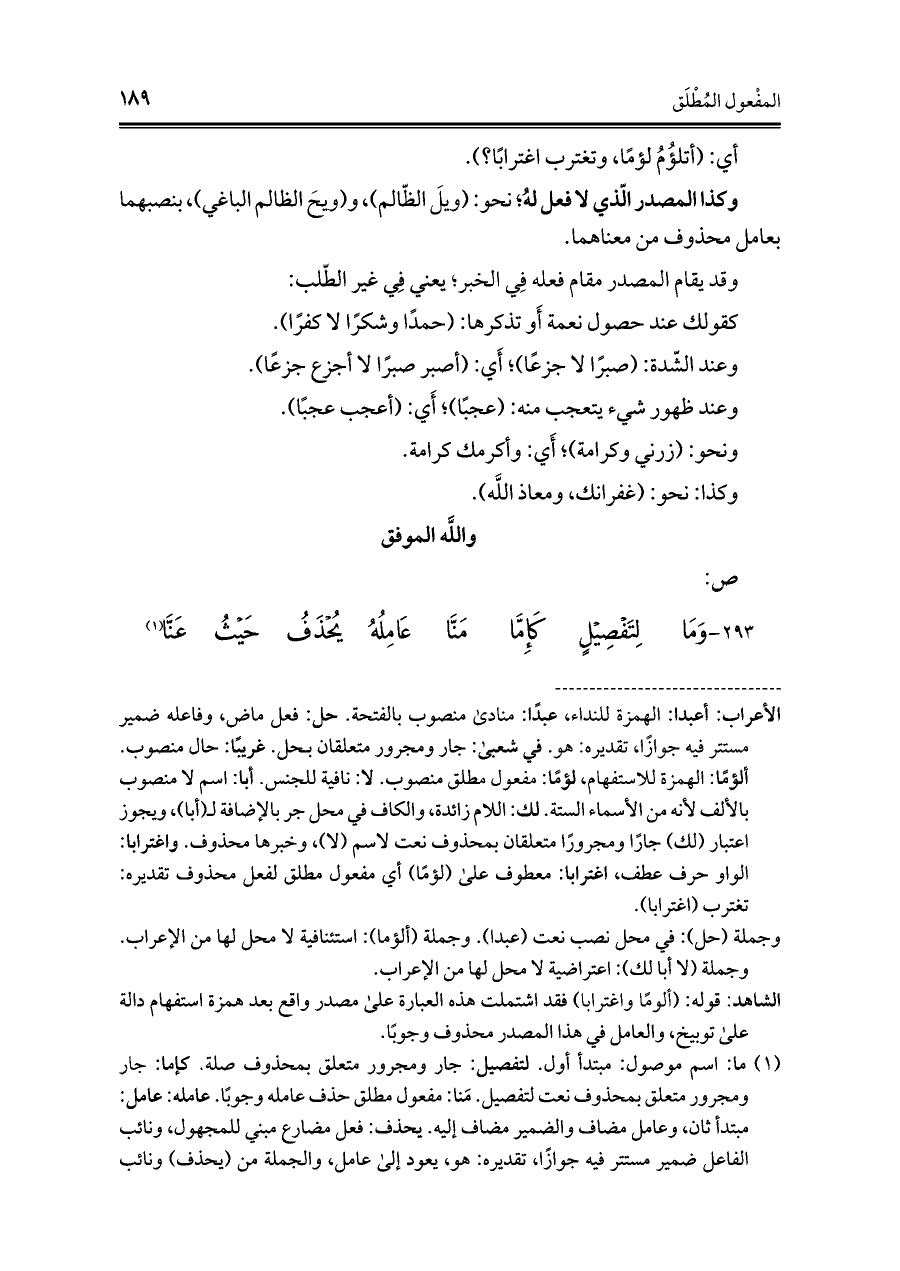 المفْعول المُطْلَق ١٨٩
أي: (أتلؤُمُ لؤمًا، وتغترب اغترابًا؟).
وكذا المصدر الّذي لا فعل لهُ؛ نحو: (ويلَ الظّالم)، و(ويحَ الظالم الباغي)، بنصبهما
بعامل محذوف من معناهما.
وقد يقام المصدر مقام فعله فِي الخبر؛ يعني فِي غير الطّلب:
كقولك عند حصول نعمة أَو تذكرها: (حمدًا وشكرًا لا كفرًا).
وعند الشّدة: (صبرًا لا جزعًا)؛ أَي: (أصبر صبرًا لا أجزع جزعًا).
وعند ظهور شيء يتعجب منه: (عجبًا)؛ أَي: (أعجب عجبًا).
ونحو: (زرني وكرامة)؛ أَي: وأكرمك كرامة.
وكذا: نحو: (غفرانك، ومعاذ اللَّه).
واللَّه الموفق
ص:
٢٩٣-وَمَا لِتَفْصِيْلٍ كَإِمَّا مَنَّا عَامِلُهُ يُحْذَفُ حَيْثُ عَنَّا(١)
الأعراب: أعبدا: الهمزة للنداء، عبدًا: منادىٰ منصوب بالفتحة. حل: فعل ماض، وفاعله ضمير
مستتر فيه جوازًا، تقديره: هو. في شعبىٰ: جار ومجرور متعلقان بـحل. غريبًا: حال منصوب.
ألؤمًا: الهمزة للاستفهام، لؤمًا: مفعول مطلق منصوب. لا: نافية للجنس. أبا: اسم لا منصوب
بالألف لأنه من الأسماء الستة. لك: اللام زائدة، والكاف في محل جر بالإضافة لـ(أبا)، ويجوز
اعتبار (لك) جارًا ومجرورًا متعلقان بمحذوف نعت لاسم (لا)، وخبرها محذوف. واغترابا:
الواو حرف عطف، اغترابا: معطوف علىٰ (لؤمًا) أي مفعول مطلق لفعل محذوف تقديره:
تغترب (اغترابا).
وجملة (حل): في محل نصب نعت (عبدا). وجملة (ألؤما): استئنافية لا محل لها من الإعراب.
وجملة (لا أبا لك): اعتراضية لا محل لها من الإعراب.
الشاهد: قوله: (ألومًا واغترابا) فقد اشتملت هذه العبارة علىٰ مصدر واقع بعد همزة استفهام دالة
علىٰ توبيخ، والعامل في هذا المصدر محذوف وجوبًا.
(١) ما: اسم موصول: مبتدأ أول. لتفصيل: جار ومجرور متعلق بمحذوف صلة. كإما: جار
ومجرور متعلق بمحذوف نعت لتفصيل. مَنا: مفعول مطلق حذف عامله وجوبًا. عامله: عامل:
مبتدأ ثان، وعامل مضاف والضمير مضاف إليه. يحذف: فعل مضارع مبني للمجهول، ونائب
الفاعل ضمير مستتر فيه جوازًا، تقديره: هو، يعود إلىٰ عامل، والجملة من (يحذف) ونائب